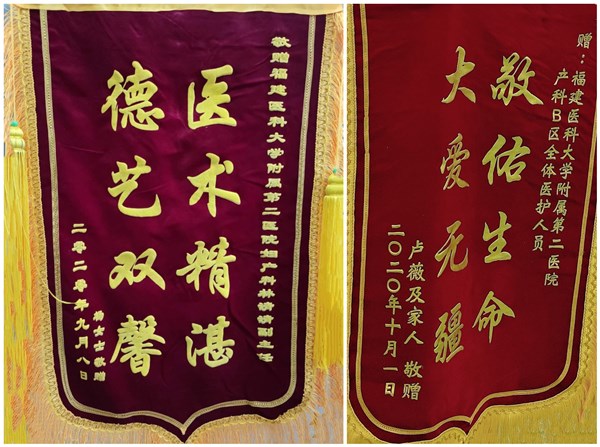 敬赠福建医科大学附属第二医院妇产科
医术精湛
德艺双馨
二零二零年九月八日
赠：福建医科大学附属第二医院
产科B区全体医护人员
敬佑生命
大爱无疆
卢薇及家人 敬赠
二〇二〇年十月一日